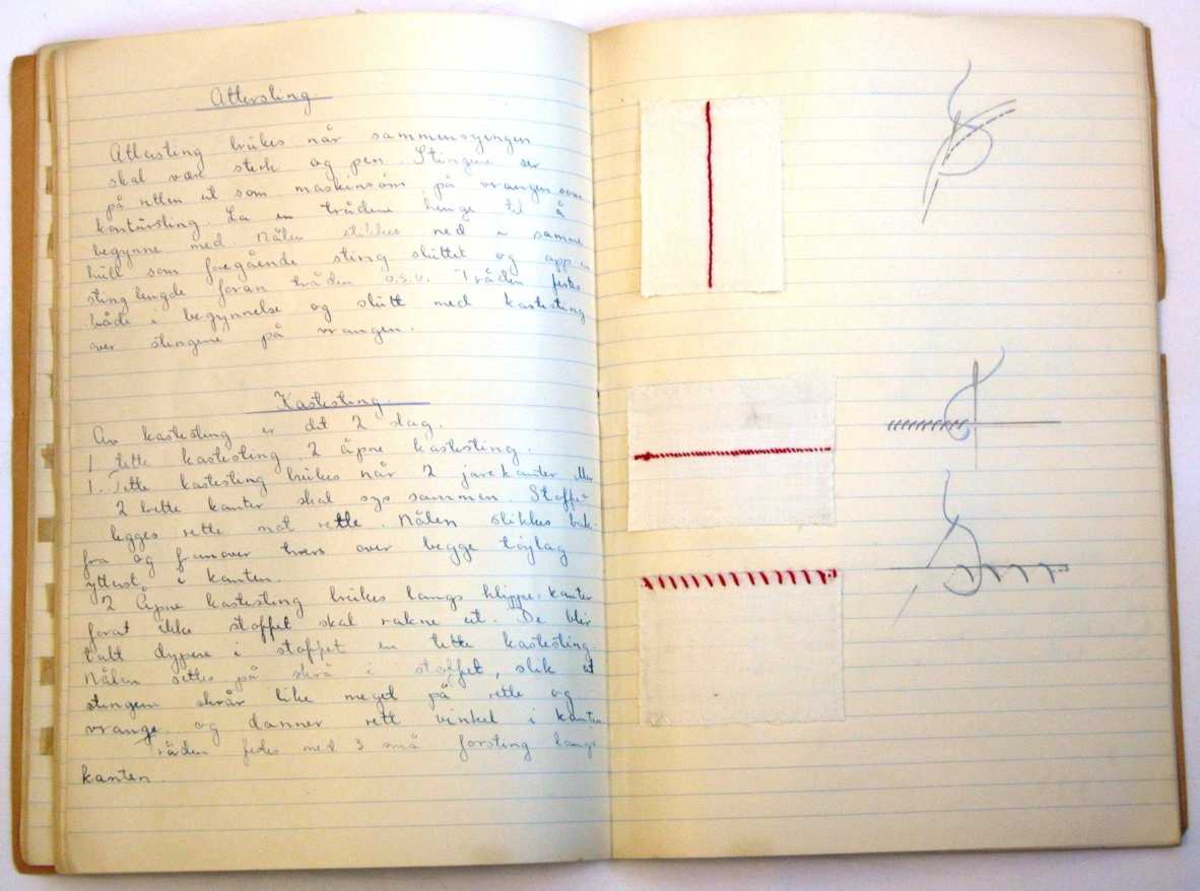 Attersting
Attersting brukes når sammensyingen
skal være sterk og pen. Stingene ser
på retten ut som maskinsøm, på vrangen som
kontursting. La en trådene henge til å
begynne med. Nålen stikkes ned i samme
hull som foregående sting sluttet og opp en
stinglengde foran tråden o.s.v. Tråden festes
både i begynnelse og slutt med kastesting
over stingene på vrangen.
Kastesting
Av kastesting er det 2 slag.
1. tette kastesting 2 åpne kastesting.
1. Tette kastesting brukes når 2 jarekanter eller
2 brette kanter skal sys sammen. Stoffet
legges rette mot rette. Nålen stikkes bak
fra og framover tvers over begge tøylag
ytterst i kanten.
2 Åpne kastesting brukes langs klippe-kanter
forat ikke stoffet skal rakne ut. De blir
tatt dypere i stoffet en tette kastesting.
Nålen settes på skrå i stoffet, slik at
stingene skrår like meget på rette og
vrange og danner rett vinkel i kanten
råden festes med 3 små forsting langs
kanten